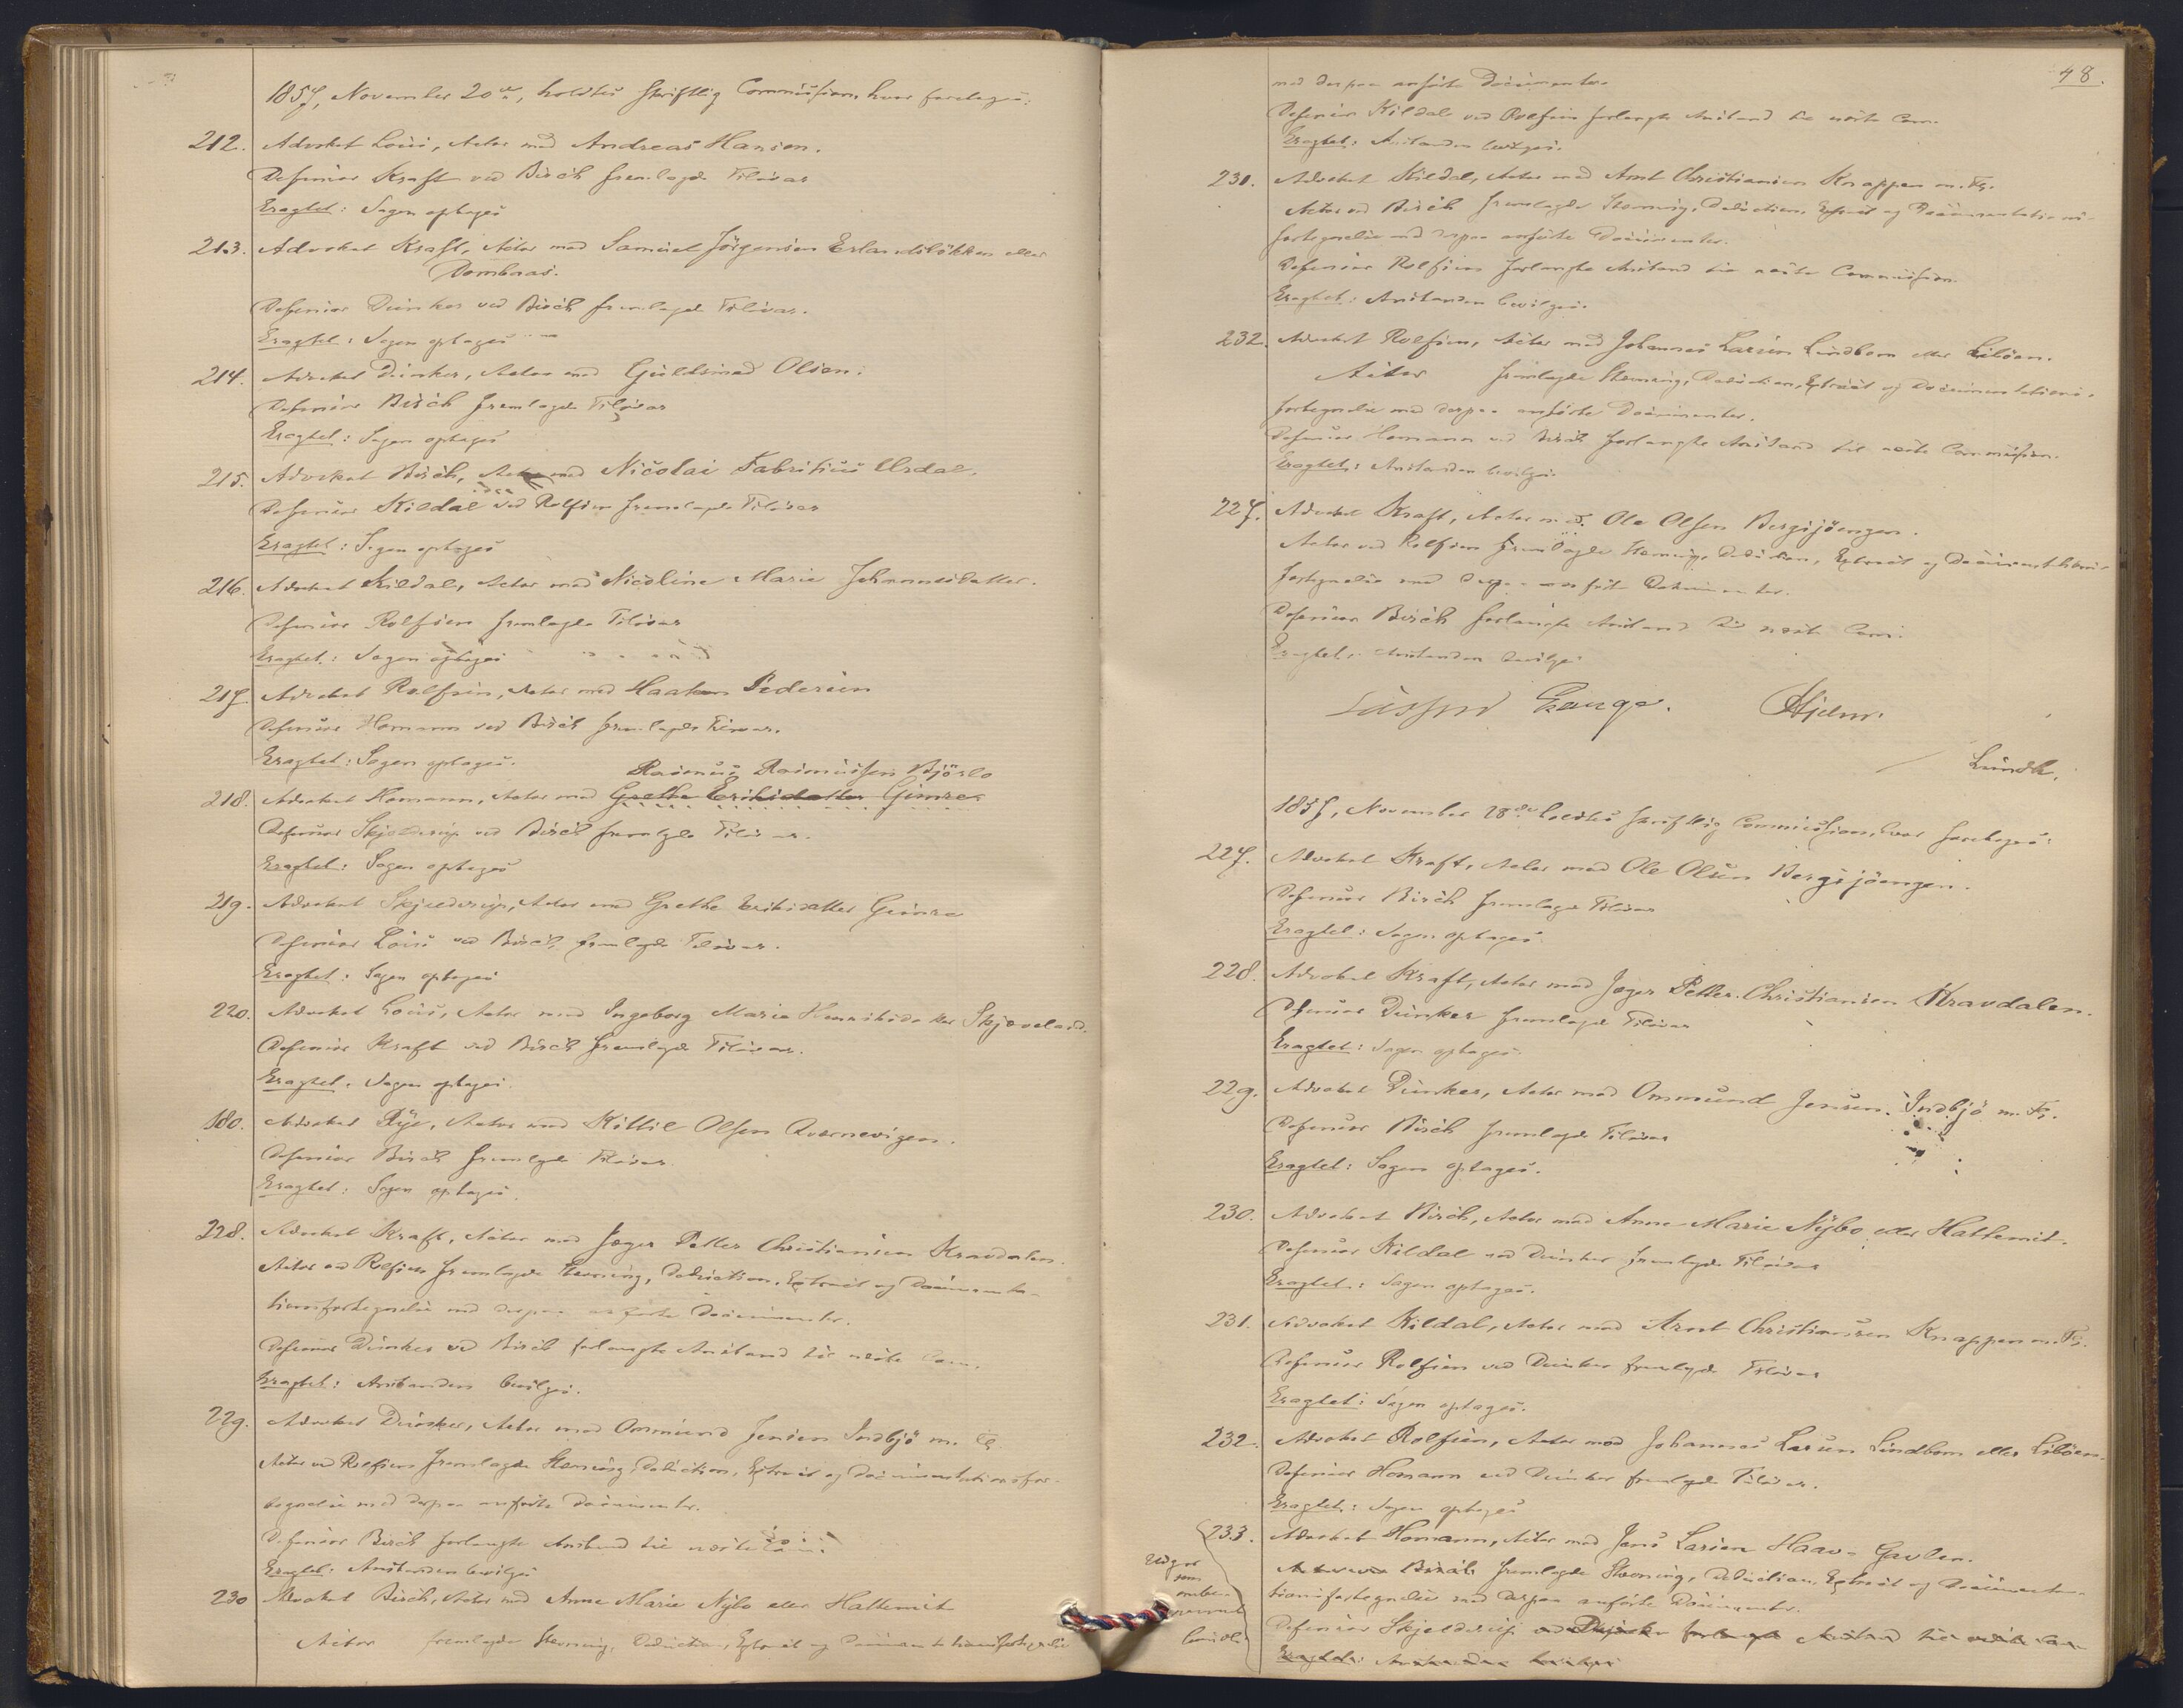 1857, November 20de, holdtes skriftlig Commission, hvor foretoges:
212. Advokat Lous, Actor mod Andreas Hansen.
Defensor Kraft ved Birch fremlagde Tilsvar
Eragtet: Sagen optages
213. Advokat Kraft, Actor mod Samuel Jörgensen Erlandslökken eller
Dombaas.
Defensor Dunker ved Birch fremlagde Tilsvar.
Eragtet: Sagen optages
214. Advokat Dunker, Actor mod Guldsmed Olsen.
Defensor Birch fremlagde Tilsvar
Eragtet: Sagen optages
215. Advokat Birch, Actor mod Nicolai Fabritius Urdal.
Defensor Kildal ved Rolfsen fremlagde Tilsvar
Eragtet: Sagen optages
216. Advokat Kildal, Actor mod Nicoline Marie Johannesdatter.
Defensor Rolfsen fremlagde Tilsvar
Eragtet: Sagen optages
217. Advokat Rolfsen, Actor mod Haaken Pedersen
Defensor Homann ved Birch fremlagde Tilsvar.
Eragtet: Sagen optages.
Rasmus Rasmussen Björlo
218. Advokat Homann, Actor mod Grethe Eriksdatter Gimre
Defensor Skjelderup ved Birch fremlagde Tilsvar.
Eragtet: Sagen optages
219. Advokat Skjelderup, Actor mod Grethe Eriksdatter Gimre
Defensor Lous ved Birch fremlagde Tilsvar.
Eragtet: Sagen optages
220. Advokat Lous, Actor mod Ingeborg Marie Henriksdatter Skjæveland.
Defensor Kraft ved Birch fremlagde Tilsvar.
Eragtet: Sagen optages.
180. Advokat Rye, Actor mod Kittil Olsen Qvernevigen.
Defensor Birch fremlagde Tilsvar.
Eragtet: Sagen optages.
228. Advokat Kraft, Actor mod Jæger Petter Christiansen Kravdalen.
Actor ved Rolfsen fremlagde Stevning, Deduction, Extract og Documenta-
tionsfortegnelse med derpaa anførte Documenter.
Defensor Dunker ved Birch forlangte Anstand til næste Com.
Eragtet: Anstanden bevilges.
229. Advokat Dunker, Actor mod Ommund Jensen Indbjö m. Fl.
Actor ved Rolfsen fremlagde Stevning, Deduction, Extract og Documentationsfor-
tegnelse med derpaa anførte Documenter.
Defensor Birch forlangte Anstand til næste Com.
Eragtet: Anstanden bevilges
230 Advokat Birch, Actor mod Anne Marie Nybo eller Hattemit
Actor fremlagde Stevning, Deduction, Extract og Documentationsfortegnelse
48.
med derpaa anførte Documenter.
Defensor Kildal ved Rolfsen forlangte Anstand til næste Com.
Eragtet: Anstanden bevilges.
231. Advokat Kildal, Actor mod Arnt Christiansen Knappen m. Fl.
Actor ved Birch fremlagde Stevning, Deduction, Extract og Documentations-
fortegnelse med derpaa anførte Documenter.
Defensor Rolfsen forlangte Anstand til næste Commission.
Eragtet: Anstanden bevilges.
232. Advokat Rolfsen, Actor mod Johannes Larsen Lindbom eller Liböen.
Actor fremlagde Stevning, Deduction, Extract og Documentations-
fortegnelse med derpaa anførte Documenter.
Defensor Homann ved Birch forlangte Anstand til næste Commission.
Eragtet: Anstanden bevilges.
227. Advokat Kraft, Actor mod. Ole Olsen Bergsjöengen.
Actor ved Rolfsen fremlagde Stevning, Deduction, Extract og Documentations-
fortegnelse med derpaa anførte Dokumenter.
Defensor Birch forlangte Anstand til næste Com.
Eragtet: Anstanden bevilges
Lasson Hjelm.
Lundh.
1857, November 28de holdtes skriftlig Commission, hvor foretoges:
227. Advokat Kraft, Actor mod Ole Olsen Bergsjöengen.
Defensor Birch fremlagde Tilsvar
Eragtet: Sagen optages.
228. Advokat Kraft, Actor mod Jæger Petter Christiansen Kravdalen.
Defensor Dunker fremlagde Tilsvar
Eragtet: Sagen optages.
229. Advokat Dunker, Actor mod Ommund Jensen Indbjö m. Fl.
Defensor Birch fremlagde Tilsvar
Eragtet: Sagen optages.
230. Advokat Birch, Actor mod Anne Marie Nybo eller Hattemit.
Defensor Kildal ved Dunker fremlagde Tilsvar
Eragtet: Sagen optages.
231. Advokat Kildal, Actor mod Arnt Christiansen Knappen m. Fl.
Defensor Rolfsen ved Dunker fremlagde Tilsvar
Eragtet: Sagen optages.
232. Advokat Rolfsen, Actor mod Johannes Larsen Lindbom eller Liböen.
Defensor Homann ved Dunker fremlagde Tilsvar.
Eragtet: Sagen optages
233. Advokat Homann, Actor mod Jens Larsen Haave-Gavlen.
Udgaar
som
Actor ved Birch fremlagde Stevning, Deduction, Extract og Documenta-
tionsfortegnelse med derpaa anførte Documenter.
Defensor Skjelderup ved Dunker forlangte Anstand til næste Com
Eragtet: Anstanden bevilges